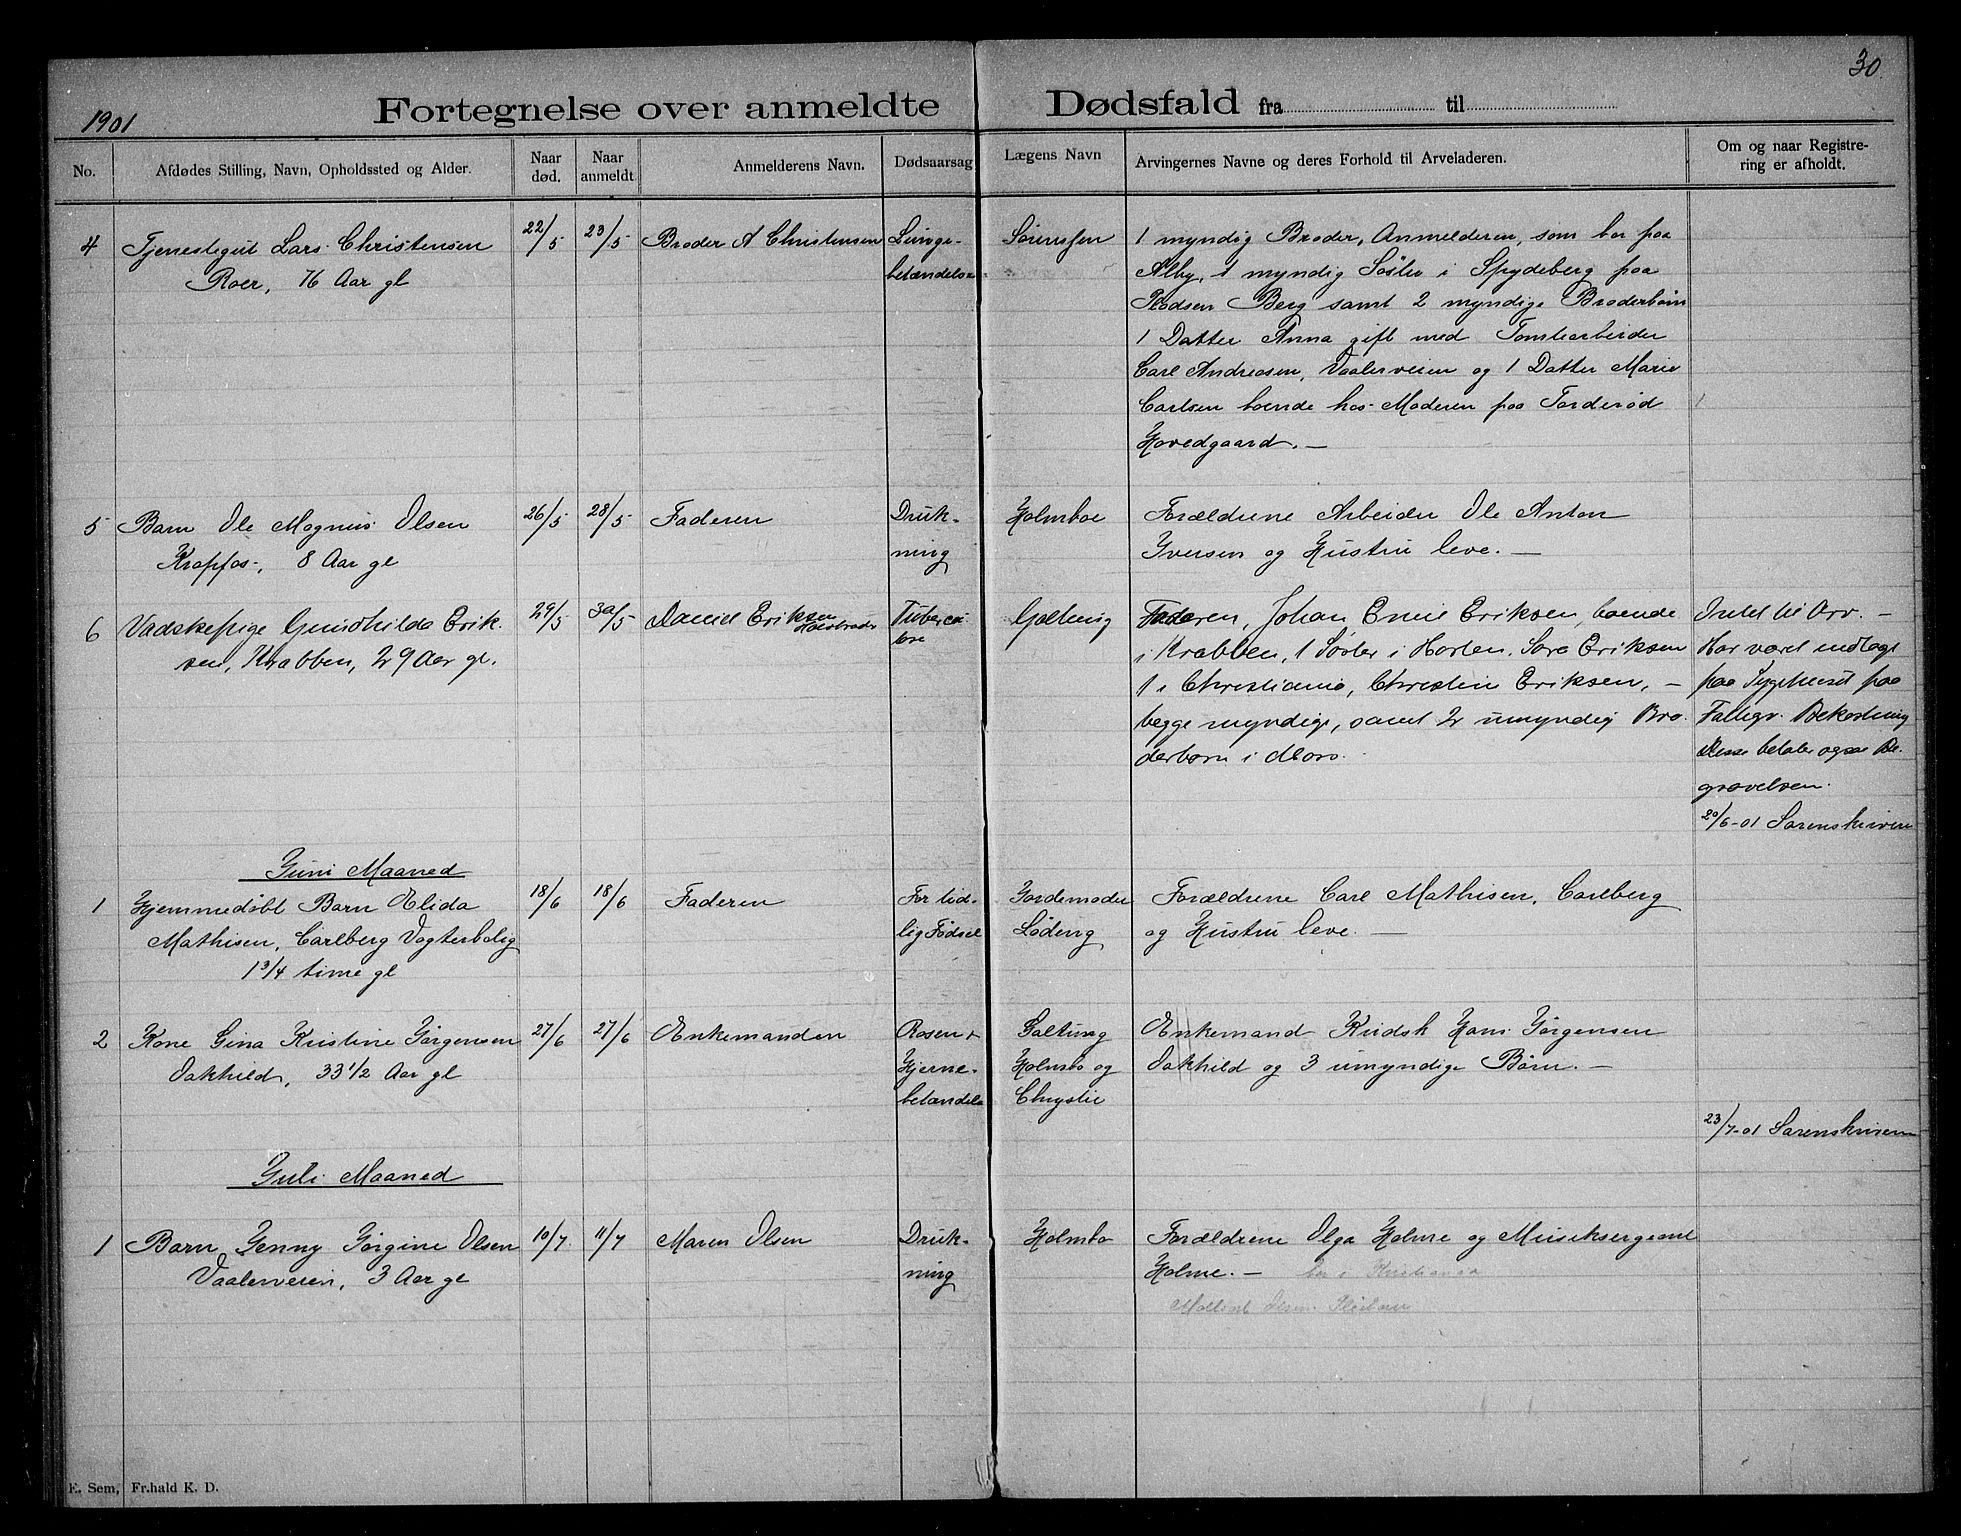 30
1901
Fortegnelse over anmeldte Dødsfald fra til
No. Afdødes Stilling, Navn, Opholdssted og Alder. Naar død. Naar anmeldt Anmelderens Navn. Dødsaarsag Lægens Navn Arvingernes Navne og deres Forhold til Arveladeren. Om og naar Registrering er afholdt.
4 Tjenestegut Lars Christensen 22/5 23/5 Broder A Christensen Lunge- Sørenssen 1 myndig Broder, Anmelderen, som bor paa
Roer, 76 Aar gl betændelse Alby, 1 myndig Søster i Spydeberg paa
Pladsen Berg samt 2 myndige Broderbørn
1 Datter Anna gift med Tomtearbeider
Carl Andreasen, Vaalerveien og 1 Datter Marie
Carlsen boende hos Moderen paa Torderød
Hovedgaard. —
5 Barn Ole Magnus Olsen 26/5 28/5 Faderen Druk- Holmboe Forældrene Arbeider Ole Anton
Krapfos, 8 Aar gl ning Iversen og Hustru leve. —
6 Vadskepige Gunhilda Erik- 29/5 30/5 Daniel Eriksen Tubercu- Galtung Faderen, Johan Emil Eriksen, boende Intet til Arv. —
sen, Krabben, 29 Aar gl. lose i Krabben, 1 Søster i Horten, Sara Eriksen Har været indlagt
1 i Christiania, Christin Eriksen, — paa Sygehuset paa
begge myndige, samt 2 umyndig Bro- Fattigv. Bekostning
derbørn i Moss. Disse betaler ogsaa Be-
gravelsen.
20/6-01 Sorenskriveren
Juni Maaned
1 Hjemmedøbt Barn Elida 18/6 18/6 Faderen For tid- Jordemoder Forældrene Carl Mathisen, Carlberg
Mathisen, Carlberg Vogterbolig lig Fødsel Løding og Hustru leve. —
1 3/4 time gl
2 Kone Gina Kristine Jørgensen 27/6 27/6 Enkemanden Rosen + Galtung Enkemand Kudsk Hans Jørgensen
Oakhild, 33 1/2 Aar gl Hjerne- Holmbo og Oakhild og 3 umyndige Børn. —
betændelse Chrystie
23/7-01 Sorenskriveren
Juli Maaned
1 Barn Jenny Jørgine Olsen 10/7 11/7 Maren Olsen Druk- Holmbo Forældrene Olga Holme og Musiksergeant
Vaalerveien, 3 Aar gl ning Holme. — bor i Kristiania
E. Sem, Fr.hald K. D.